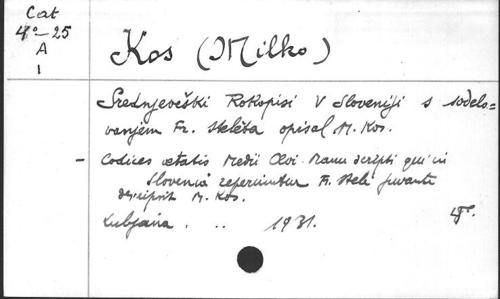 Cat
4°-25
A
1
Kos (Milko)
Srednjeveški Rokopisi v Sloveniji s sodelo-
vanjem Fr. Steléta opisal M. Kos.
- Codices aetatis Medii Aevi Manu scripti qui in
Slovenia reperiuntur Fr. Stelè juvante
descripsit M. Kos.
Lubjana . .. 1931.